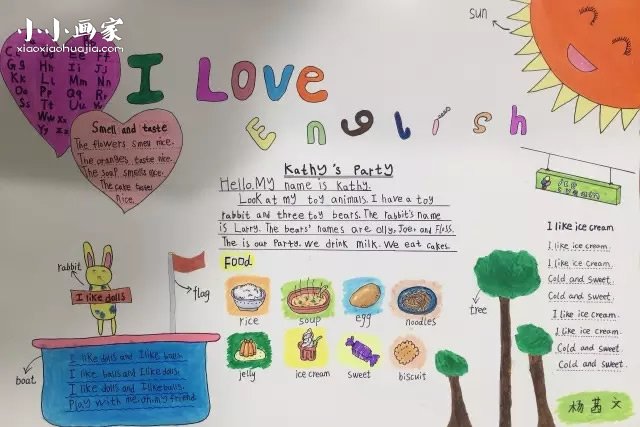 小小画家
xiaoxiaohuajia.com
I LOVE
English
sun
Gg Hh Ii Jj
Kk Ll Mm Nn
Oo Pp Qq Rr
Ss Tt
Ww Xx
Yy Zz
Smell and taste
The flowers smell nice.
The oranges taste nice.
The soap smells nice.
The cake tastes
Nice.
Kathy's Party
Hello. My name is Kathy.
Look at my toy animals. I have a toy
rabbit and three toy bears. The rabbit's name
is Larry. The bears' names are Olly, Joe, and Floss.
The is our Party. We drink milk. We eat cakes.
Food
rice
soup
egg
noodles
jelly
ice cream
sweet
biscuit
rabbit
I like dolls
flag
boat
I like dolls and I like balls.
I like balls and I like dolls.
I like dolls and I like balls.
Play with me, oh my friend.
tree
Ice cream
I like ice cream
I like ice cream.
I like ice cream.
Cold and sweet.
Cold and sweet.
I like ice cream.
I like ice cream.
Cold and sweet.
Cold and sweet.
杨茜文